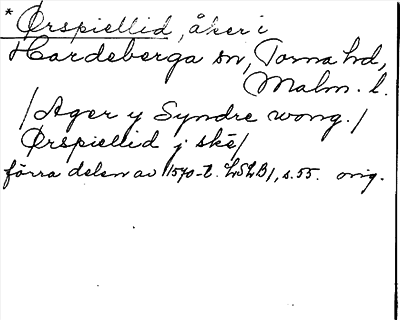 * Ørspiellid, åker i
Hardeberga sn, Torna hd,
Malm. l.
/Ager y Syndre wong./
Ørspiellid j ske/
förra delen av 1570-t. LSLB1, s. 55. orig.